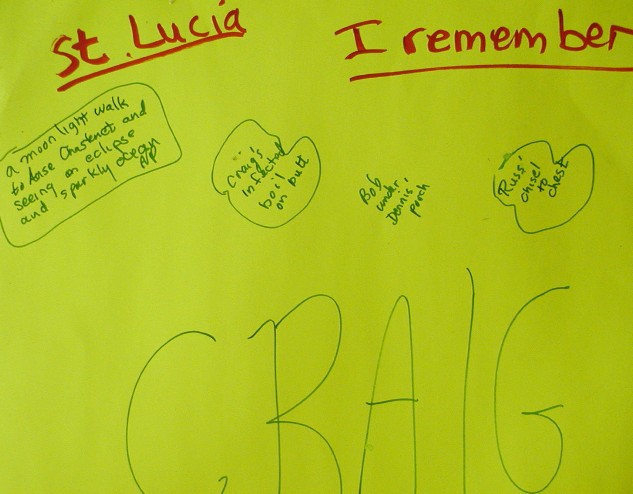 St. Lucia
I remember
a moonlight walk
to Anse Chastenet and
seeing an eclipse
and sparkly ocean
Craig's
infected
boil
on butt
Bob
under
Dennis'
porch
Russ'
chisel
to
chest
CRAIG